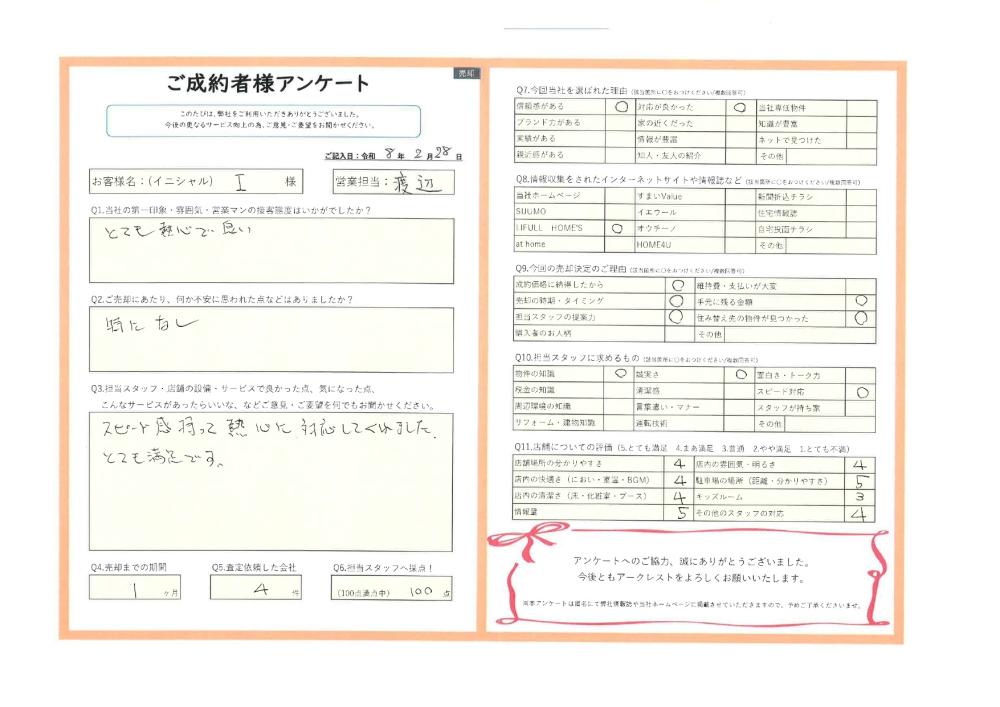 売却
ご成約者様アンケート
このたびは、弊社をご利用いただきありがとうございました。
今後の更なるサービス向上の為、ご意見・ご要望をお聞かせください。
ご記入日：令和 8 年 2 月 28 日
お客様名：(イニシャル) I 様
営業担当：渡辺
Q1.当社の第一印象・雰囲気・営業マンの接客態度はいかがでしたか？
とても熱心で良い
Q2.ご売却にあたり、何か不安に思われた点などはありましたか？
特になし
Q3.担当スタッフ・店舗の設備・サービスで良かった点、気になった点、
こんなサービスがあったらいいな、などご意見・ご要望を何でもお聞かせください。
スピード感持って熱心に対応してくれました。
とても満足です。
Q4.売却までの期間
1 ヶ月
Q5.査定依頼した会社
4 件
Q6.担当スタッフへ採点！
(100点満点中) 100 点
Q7.今回当社を選ばれた理由 (該当箇所に○をおつけください/複数回答可)
信頼感がある ○ 対応が良かった ○ 当社専任物件
ブランド力がある 家の近くだった 知識が豊富
実績がある 情報が豊富 ネットで見つけた
親近感がある 知人・友人の紹介 その他
Q8.情報収集をされたインターネットサイトや情報誌など (該当箇所に○をおつけください/複数回答可)
当社ホームページ すまいValue 新聞折込チラシ
SUUMO イエウール 住宅情報誌
LIFULL HOME'S ○ オウチーノ 自宅投函チラシ
at home HOME4U その他
Q9.今回の売却決定のご理由 (該当箇所に○をおつけください/複数回答可)
成約価格に納得したから ○ 維持費・支払いが大変
売却の時期・タイミング ○ 手元に残る金額 ○
担当スタッフの提案力 ○ 住み替え先の物件が見つかった ○
購入者のお人柄 その他
Q10.担当スタッフに求めるもの (該当箇所に○をおつけください/複数回答可)
物件の知識 ○ 誠実さ ○ 面白さ・トーク力
税金の知識 清潔感 スピード対応 ○
周辺環境の知識 言葉遣い・マナー スタッフが持ち家
リフォーム・建物知識 運転技術 その他
Q11.店舗についての評価 (5.とても満足 4.まあ満足 3.普通 2.やや満足 1.とても不満)
店舗場所の分かりやすさ 4 店内の雰囲気・明るさ 4
店内の快適さ (におい・室温・BGM) 4 駐車場の場所 (距離・分かりやすさ) 5
店内の清潔さ (床・化粧室・ブース) 4 キッズルーム 3
情報量 5 その他のスタッフの対応 4
アンケートへのご協力、誠にありがとうございました。
今後ともアークレストをよろしくお願いいたします。
※本アンケートは匿名にて弊社情報誌や当社ホームページに掲載させていただきますので、予めご了承くださいませ。